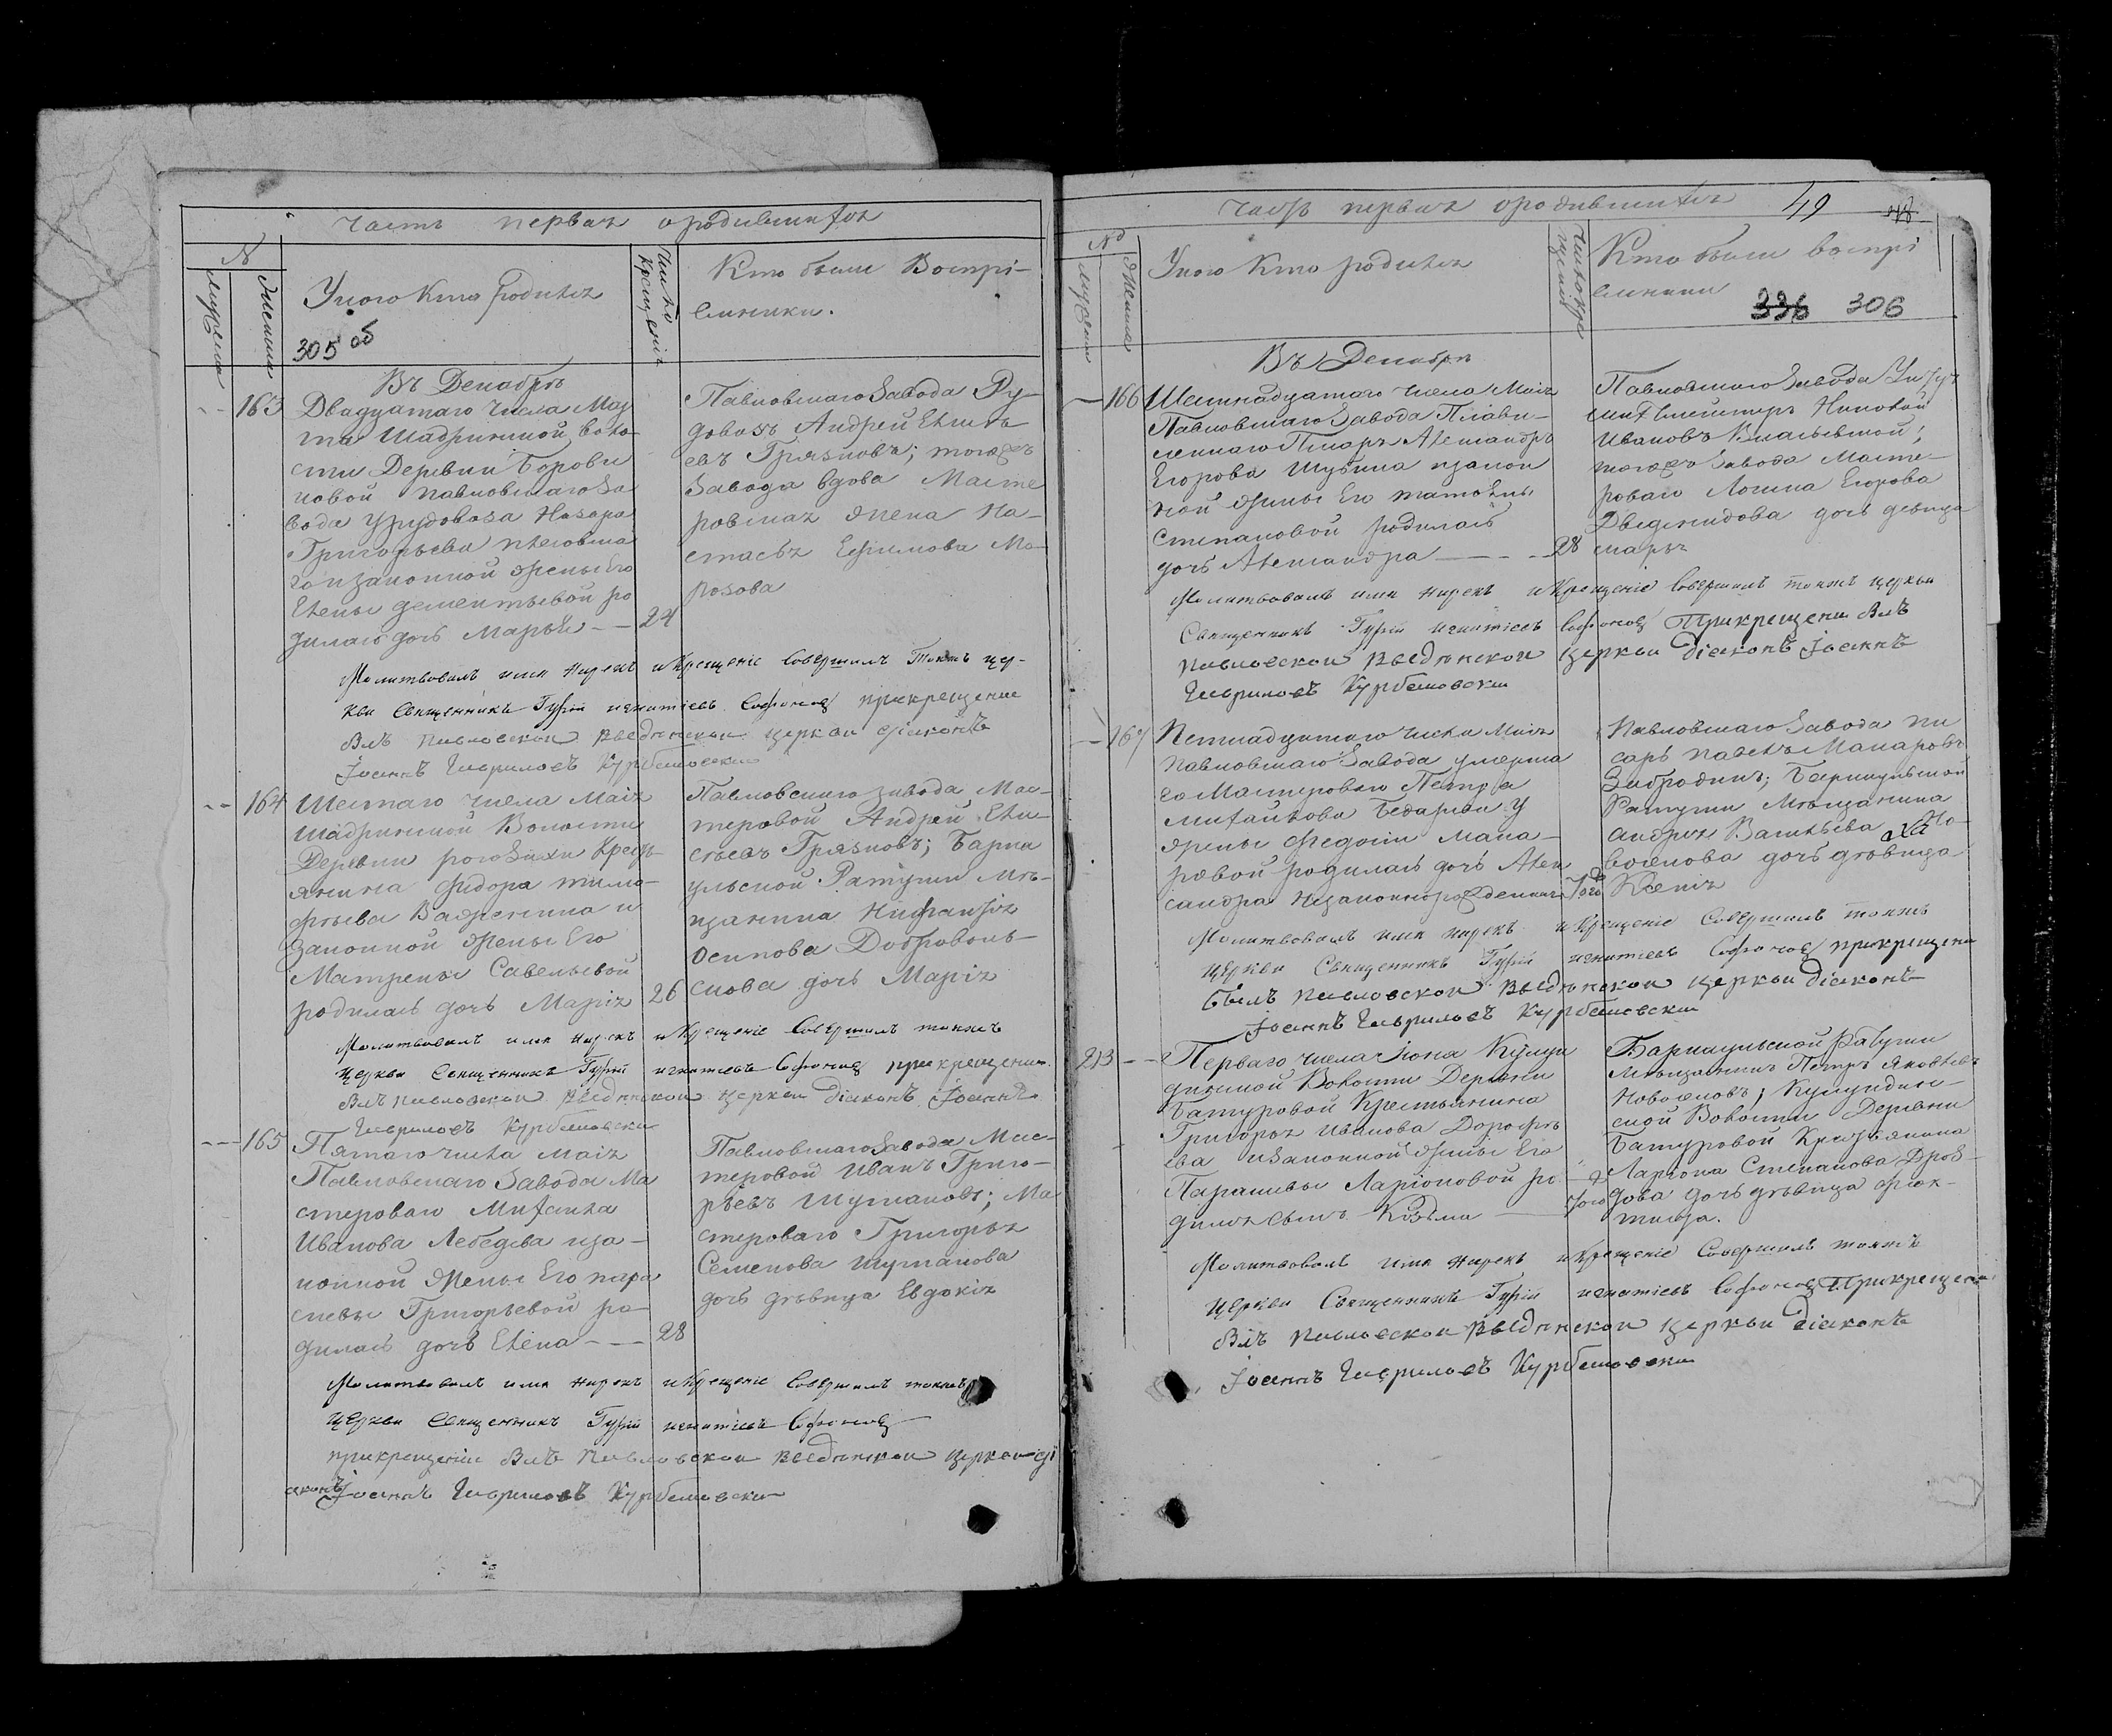 Часть первая о родившихся
№
Мужеска
Женска
У кого кто родился
305 об
Число крещенія
Кто были Воспрі-
емники.
Въ Декабре
163 Двадцатаго числа Мая
та Шадринской воло
сти Деревни Борови
ковой Павловскаго за
вода
Григорьева
законной жены его
Елены Дементьевой ро
дилась дочь Марья — 24
Павловскаго Завода Ру-
довозъ Андрей Елисе
евъ Грязновъ; тогожъ
Завода вдова Масте
ровская жена На-
стасья Ефимова Мо-
розова
Молитвовалъ имя нарекъ и Крещеніе Совершилъ тоежъ цер-
кви Священникъ Гурій Игнатіевъ Софонов прикрещение
Былъ Павловской Введенской церкви діаконъ
Іоаннъ Гавриловъ Курбановски
164 Шестаго числа Маія
Шадринской Волости
Деревни Рогозихи Крест-
янина Федора Тимо-
фѣева и
законной жены Его
Матрены Савельевой
родилась дочь Марія 26
Павловскаго завода Мас-
теровой Андрей Ели-
сѣевъ Грязновъ; Барна
ульской Ратуши Мѣ-
щанина
Осипова Доброволь-
скова дочь Марія
Молитвовалъ имя нарекъ и Крещеніе Совершилъ тоежъ
церкви Священникъ Гурій Игнатіевъ Софонов прикрещении
Былъ Павловской Введенской церкви діаконъ Іоаннъ
Гавриловъ Курбановски
165 Пятаго числа Маія
Павловскаго Завода Ма
стероваго Михаила
Иванова Лебедева иза-
конной жены Его Пара
скевы Григорьевой ро-
дилась дочь Елена — 28
Павловскаго Завода Мас-
теровой Иванъ Григо-
рьевъ Шумановъ; Ма
стероваго Григорья
Семенова Шуманова
дочь дѣвица Евдокія
Молитвовалъ имя нарекъ и Крещеніе Совершилъ тоежъ
церкви Священникъ Гурій Игнатіевъ Софонов
прикрещеніи Былъ Павловской Введенской церкви ді
аконъ Іоаннъ Гавриловъ Курбановски
Часть первая о родившихся 49
№
Мужеска
Женска
У кого кто родился
Число крещенія
Кто были воспрі
емники 336 306
Въ Декабре
166 Шестнадцатаго числа Маія
Павловскаго Завода Плави-
леннаго Писаря Александра
Егорова Шубина изакон
ной жены Его Татьяны
Степановой родилась
дочь Александра — 28
Павловскаго Завода
Николай
Ивановъ
тогожъ Завода Масте-
роваго Логина Егорова
дочь девица
Марья
Молитвовалъ имя нарекъ и Крещеніе Совершилъ тоежъ церкви
Священникъ Гурій Игнатіевъ Софонов Прикрещени Былъ
Павловской Введенской церкви діаконъ Іоаннъ
Гавриловъ Курбановски
167 Петнадцатаго числа Маія
Павловскаго Завода умерша
го Мастероваго Петра
Михайлова Бедарева У
жены Федосіи Мака-
ровой родилась дочь Алек
сандра Незаконнорожденная того
Павловскаго Завода Пи
сарь Павелъ Макаровъ
Забродинъ; Барнаульской
Ратуши Мѣщанина
Андрея Васильева Но-
воселова дочь дѣвица
Ксенія
Молитвовалъ имя нарекъ и Крещеніе Совершилъ тоежъ
церкви Священникъ Гурій Игнатіевъ Софонов прикрещени
былъ Павловской Введенской церкви діаконъ
Іоаннъ Гавриловъ Курбановски
213 Перваго числа Іюня Кулун
динской Волости Деревни
Батуровой Крестьянина
Григорья Иванова Дорофѣ
ева изаконной жены Его
Парасковьи Ларіоновой ро-
дился сынъ Козьма — того
Барнаульской Ратуши
Мѣщанинъ Петръ Яковлевъ
Новоселовъ; Кулундин-
ской Волости Деревни
Батуровой Крестьянина
Ларіона Степанова Дроз-
дова дочь дѣвица Фек-
тиста.
Молитвовалъ имя нарекъ и Крещеніе Совершилъ тоежъ
церкви Священникъ Гурій Игнатіевъ Софонов Прикрещени
Былъ Павловской Введенской церкви діаконъ
Іоаннъ Гавриловъ Курбановски